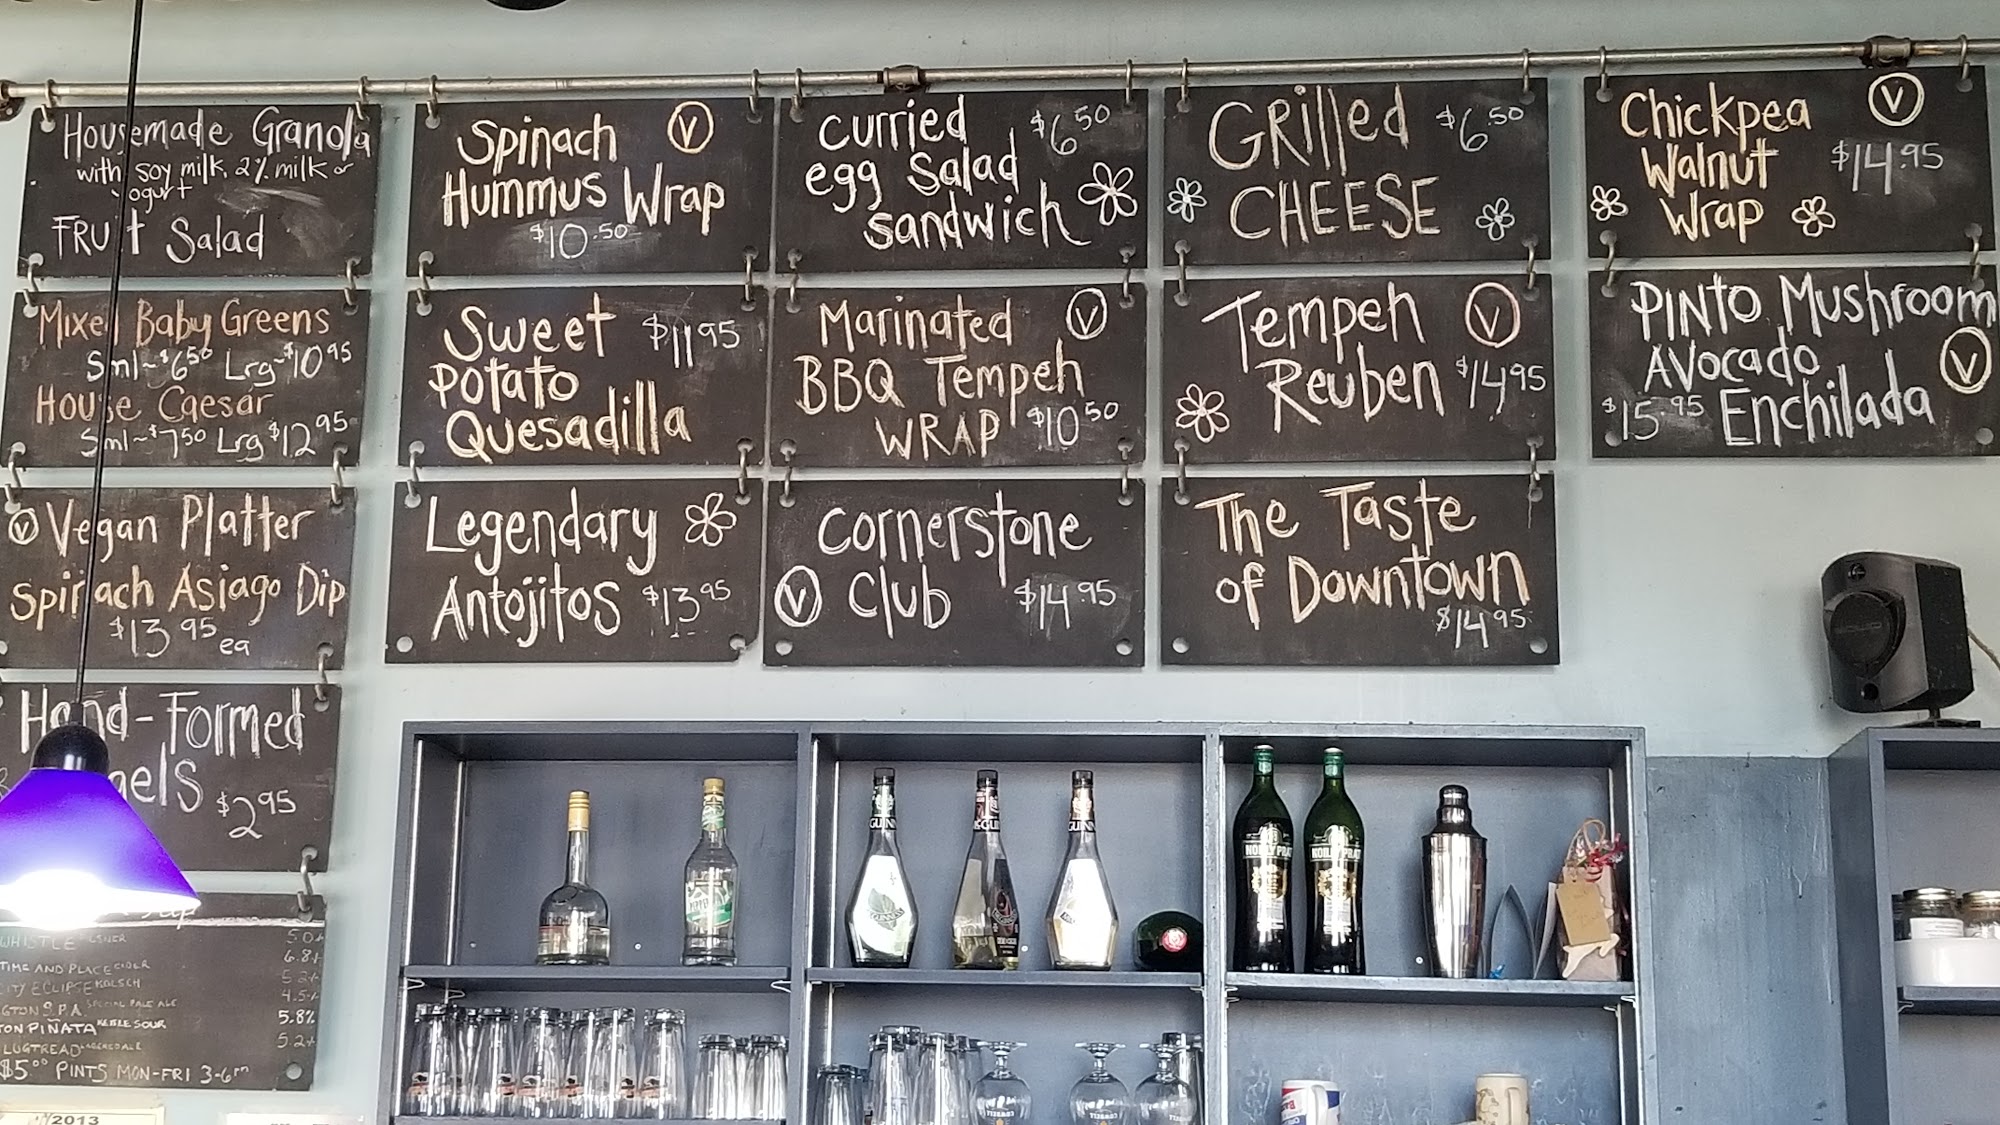 Housemade Granola
with soy milk, 2% milk or
yogurt
FRUit Salad
Mixed Baby Greens
Sml~$6.50 Lrg~$10.95
House Caesar
Sml~$7.50 Lrg $12.95
V Vegan Platter
Spinach Asiago Dip
$13.95 ea
Hand-Formed
gels $2.95
WHISTLE PILSNER 5.0%
6.8%
TIME AND PLACE CIDER
5.2%
CITY ECLIPSE KOLSCH
4.5%
GTON S.P.A. SPECIAL PALE ALE
5.8%
TON PIÑATA KETTLE SOUR
5.2%
LUGTREAD LAGERED ALE
$5.00 PINTS MON-FRI 3-6pm
2013
Spinach V
Hummus Wrap
$10.50
Sweet $11.95
Potato
Quesadilla
Legendary
Antojitos $13.95
Curried $6.50
egg Salad
sandwich
Marinated V
BBQ Tempeh
WRAP $10.50
Cornerstone
V Club $14.95
GRilled $6.50
CHEESE
Tempeh V
Reuben $14.95
The Taste
of Downtown
$14.95
Chickpea V
Walnut $14.95
Wrap
PINTO Mushroom
AVocado V
$15.95 Enchilada
GUINN
McGUIN
GUINN
NOILLY PRAT
NOILLY PRAT